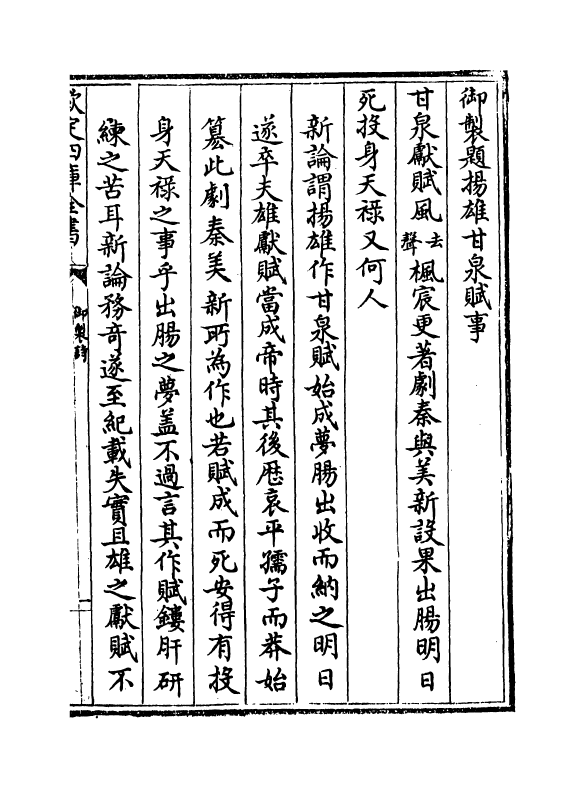 御製題揚雄甘泉賦事
甘泉獻賦風去聲楓宸更著劇秦與美新設果出腸明日
死投身天祿又何人
新論謂揚雄作甘泉賦始成夢腸出收而納之明日
遂卒夫雄獻賦當成帝時其後歴哀平孺子而莽始
簒此劇秦美新所為作也若賦成而死安得有投
身天祿之事乎出腸之夢盖不過言其作賦鏤肝研
練之苦耳新論務竒遂至紀載失實且雄之獻賦不
欽定四庫全書
御製詩
一